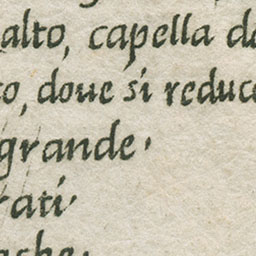 alto, capella d
o, doue si reduc
grande.
rati.
ache.